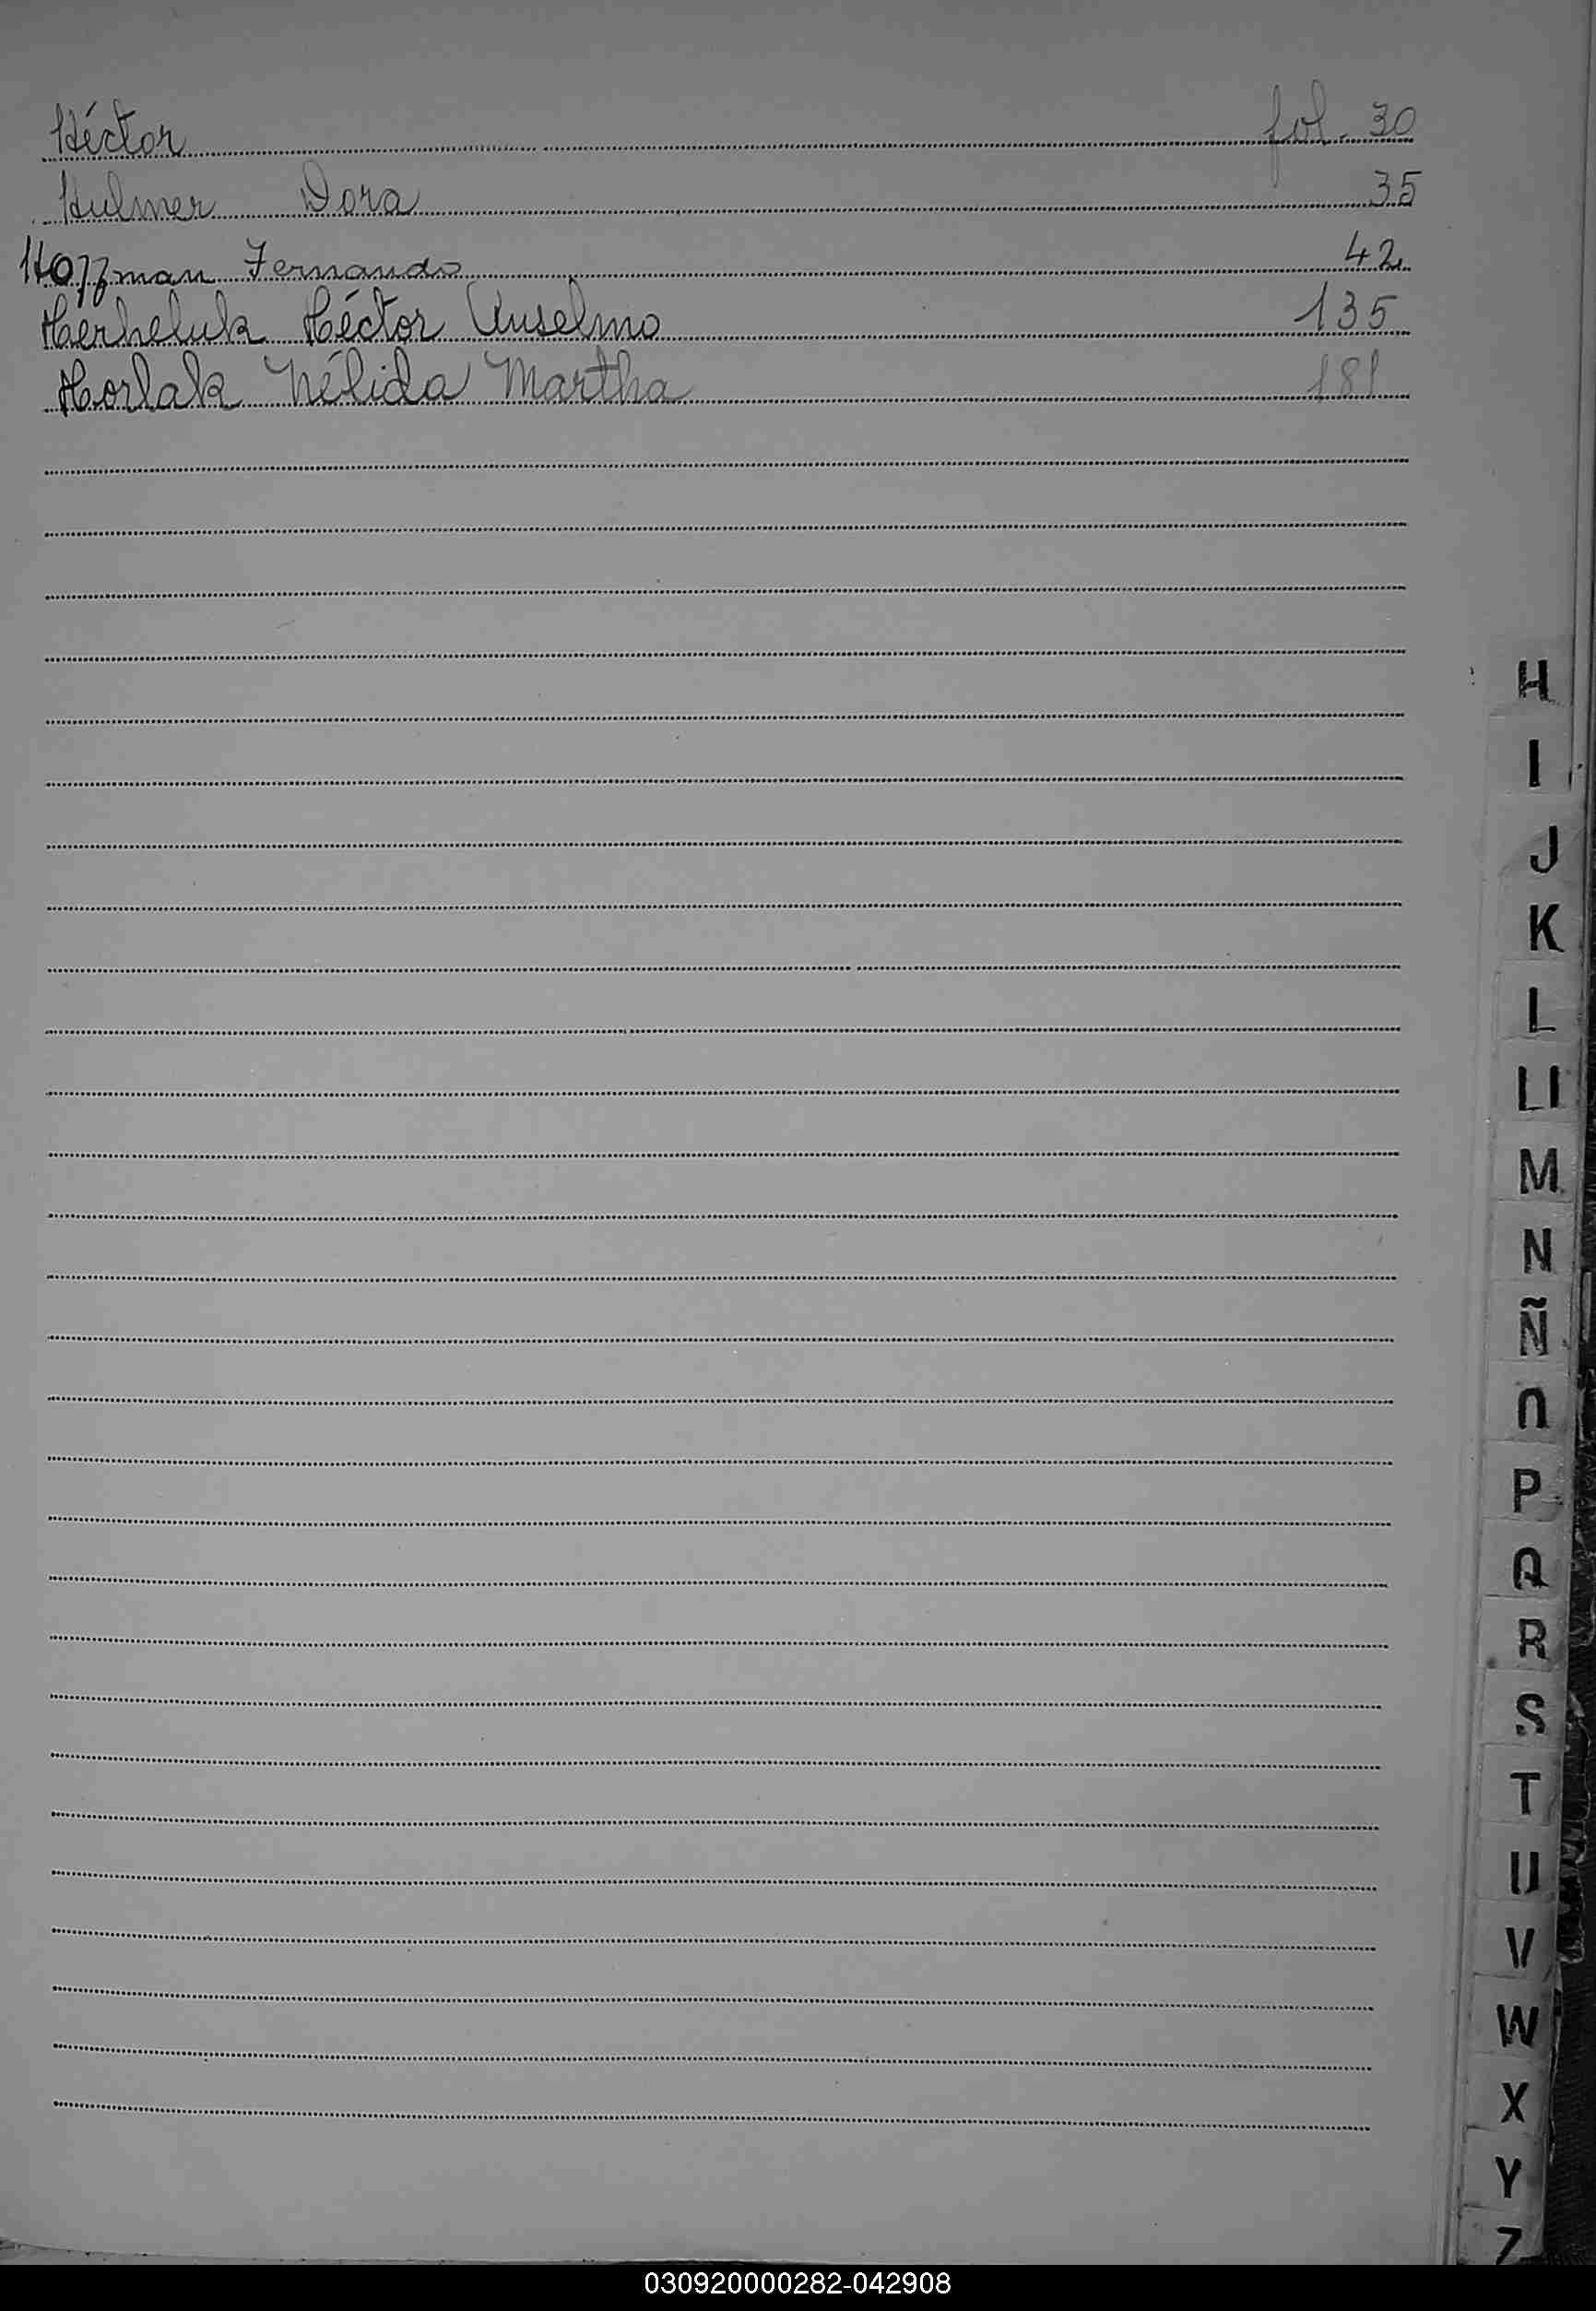 Héctor fol. 30
Hulmer Dora 35
Hoffman Fernando 42
Herheluk Héctor Anselmo 135
Horlak Nélida Martha 181
H
I
J
K
L
Ll
M
N
Ñ
O
P
Q
R
S
T
U
V
W
X
Y
Z
030920000282-042908